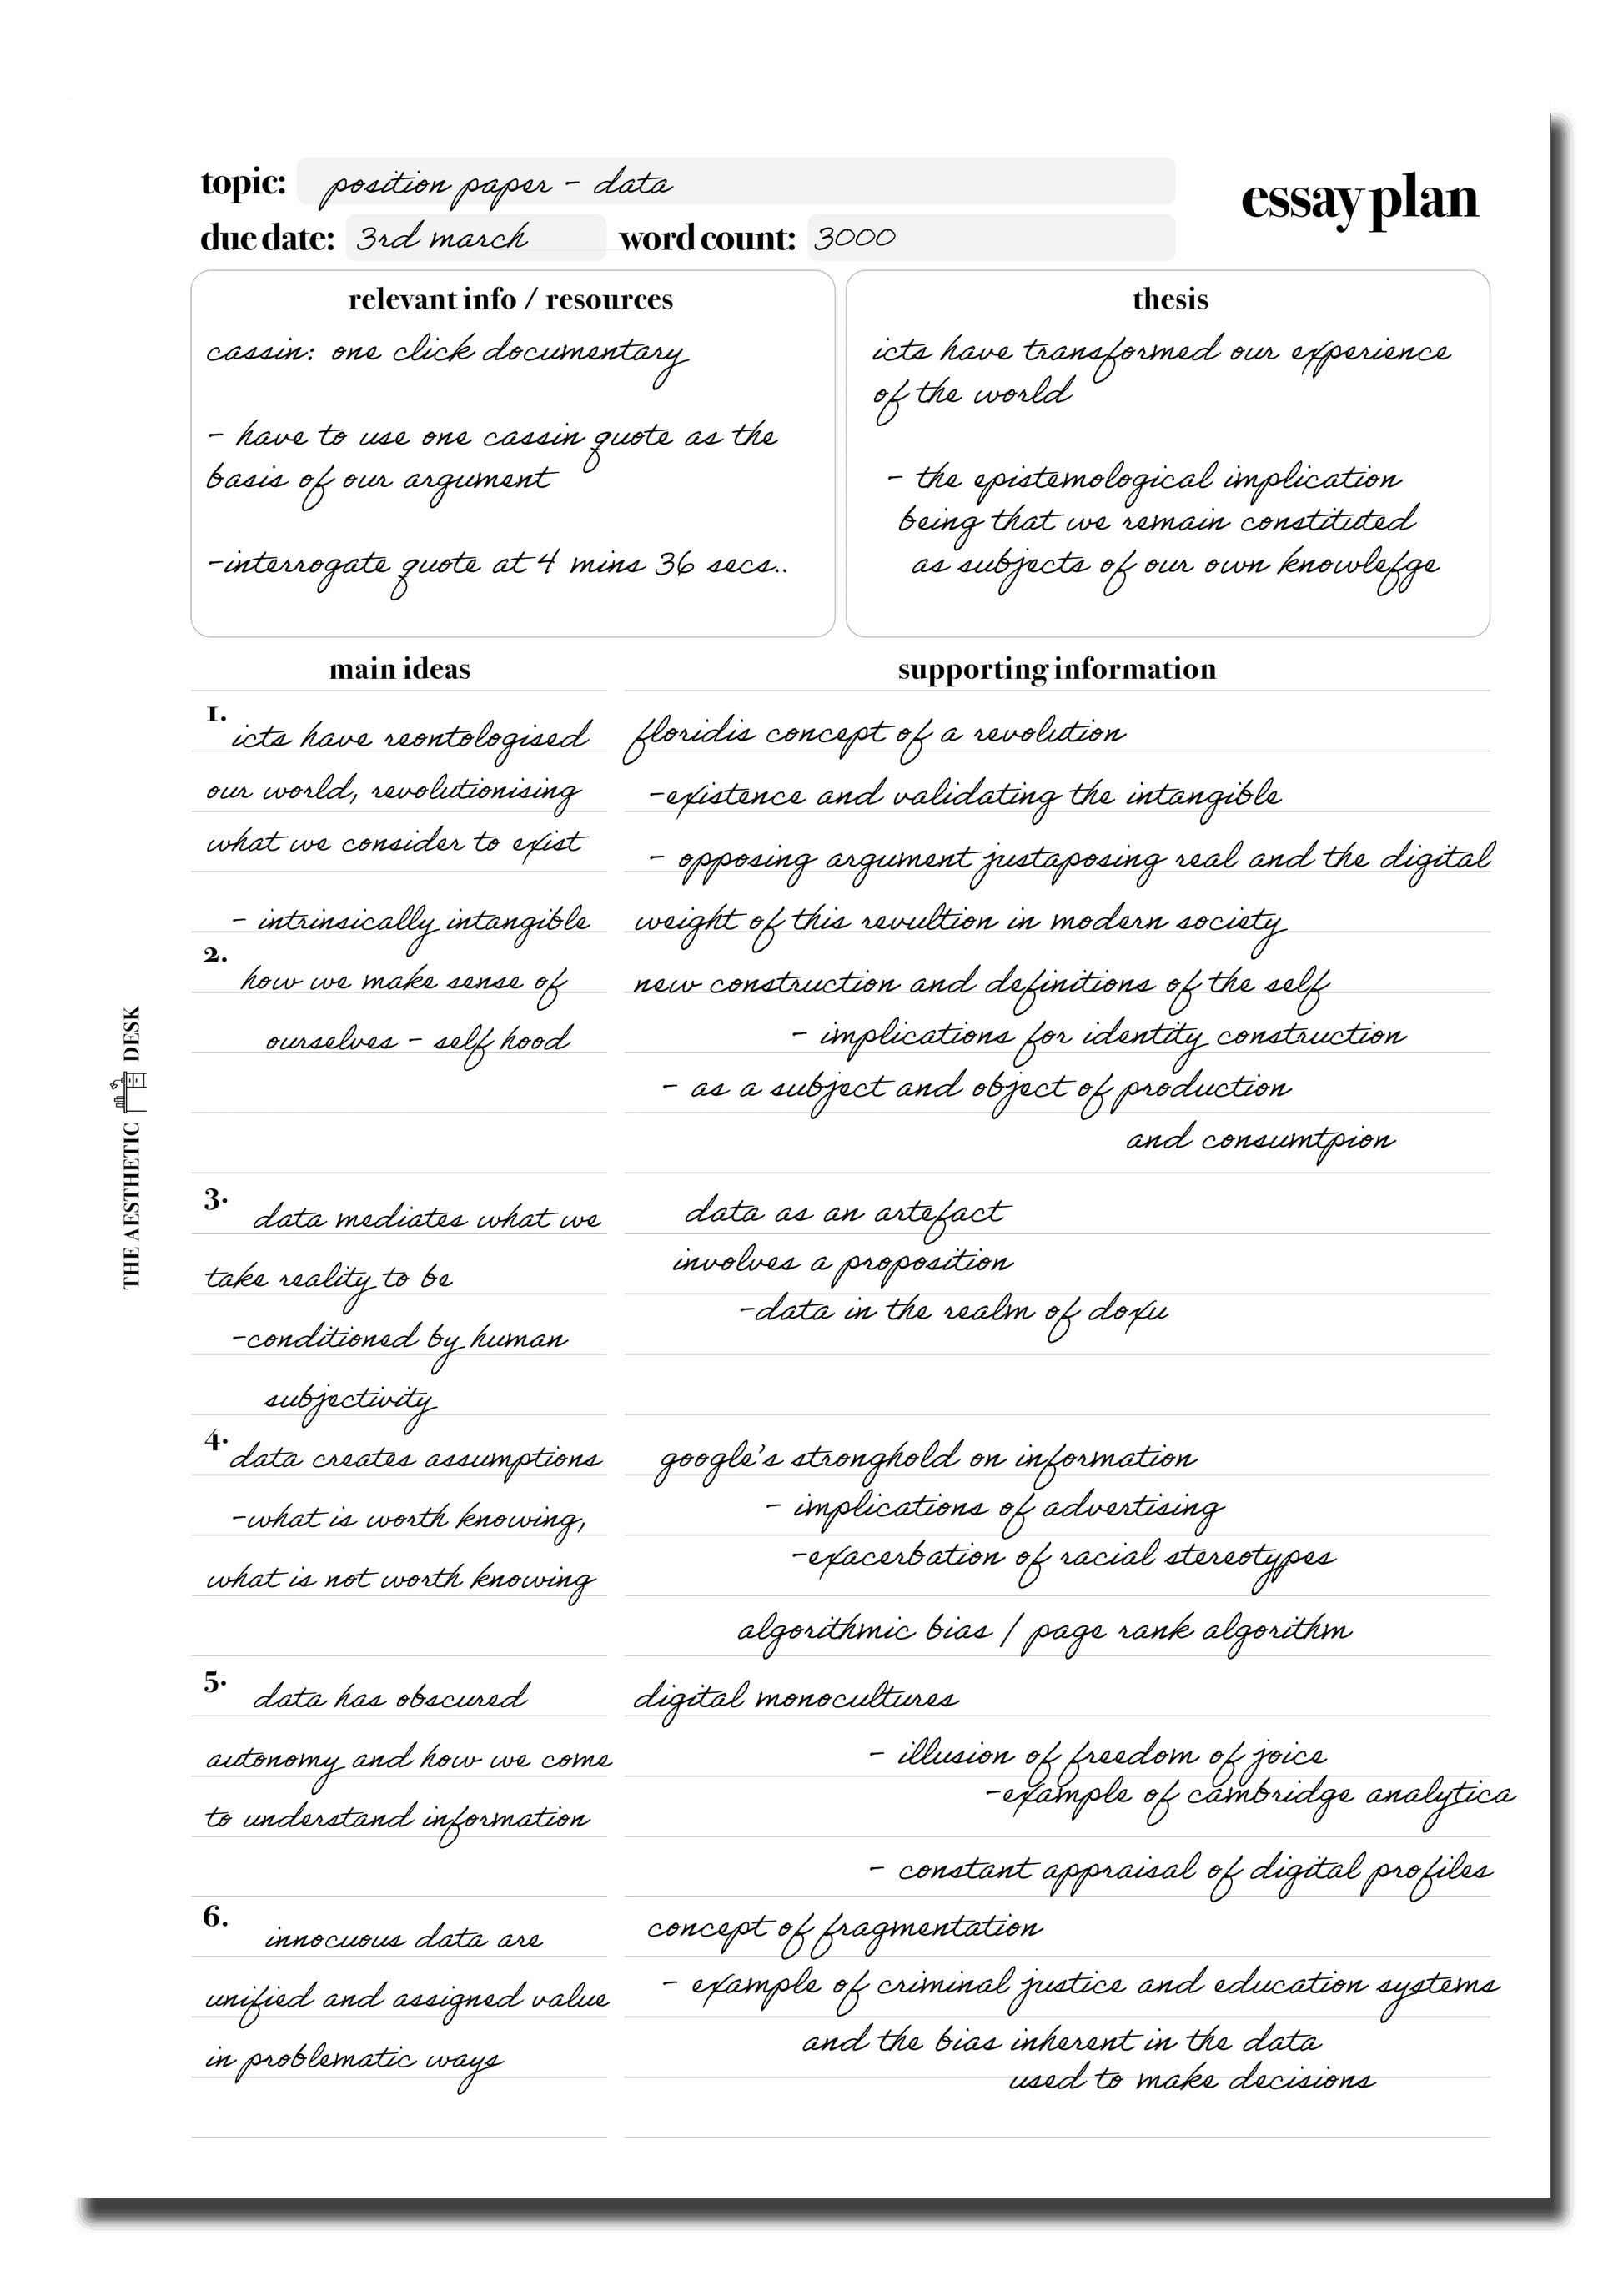 topic: position paper - data
essay plan
due date: 3rd march word count: 3000
relevant info / resources
cassin: one click documentary
- have to use one cassin quote as the
basis of our argument
-interrogate quote at 4 mins 36 secs..
thesis
icts have transformed our experience
of the world
- the epistemological implication
being that we remain constituted
as subjects of our own knowlefge
main ideas
supporting information
1.
icts have reontologised
our world, revolutionising
what we consider to exist
- intrinsically intangible
floridis concept of a revolution
-existence and validating the intangible
- opposing argument justaposing real and the digital
weight of this revultion in modern society
2.
how we make sense of
ourselves - self hood
new construction and definitions of the self
- implications for identity construction
- as a subject and object of production
and consumtpion
3.
data mediates what we
take reality to be
-conditioned by human
subjectivity
data as an artefact
involves a proposition
-data in the realm of doxu
4.
data creates assumptions
-what is worth knowing,
what is not worth knowing
google's stronghold on information
- implications of advertising
-exacerbation of racial stereotypes
algorithmic bias / page rank algorithm
5.
data has obscured
autonomy and how we come
to understand information
digital monocultures
- illusion of freedom of joice
-example of cambridge analytica
- constant appraisal of digital profiles
6.
innocuous data are
unified and assigned value
in problematic ways
concept of fragmentation
- example of criminal justice and education systems
and the bias inherent in the data
used to make decisions
THE AESTHETIC DESK